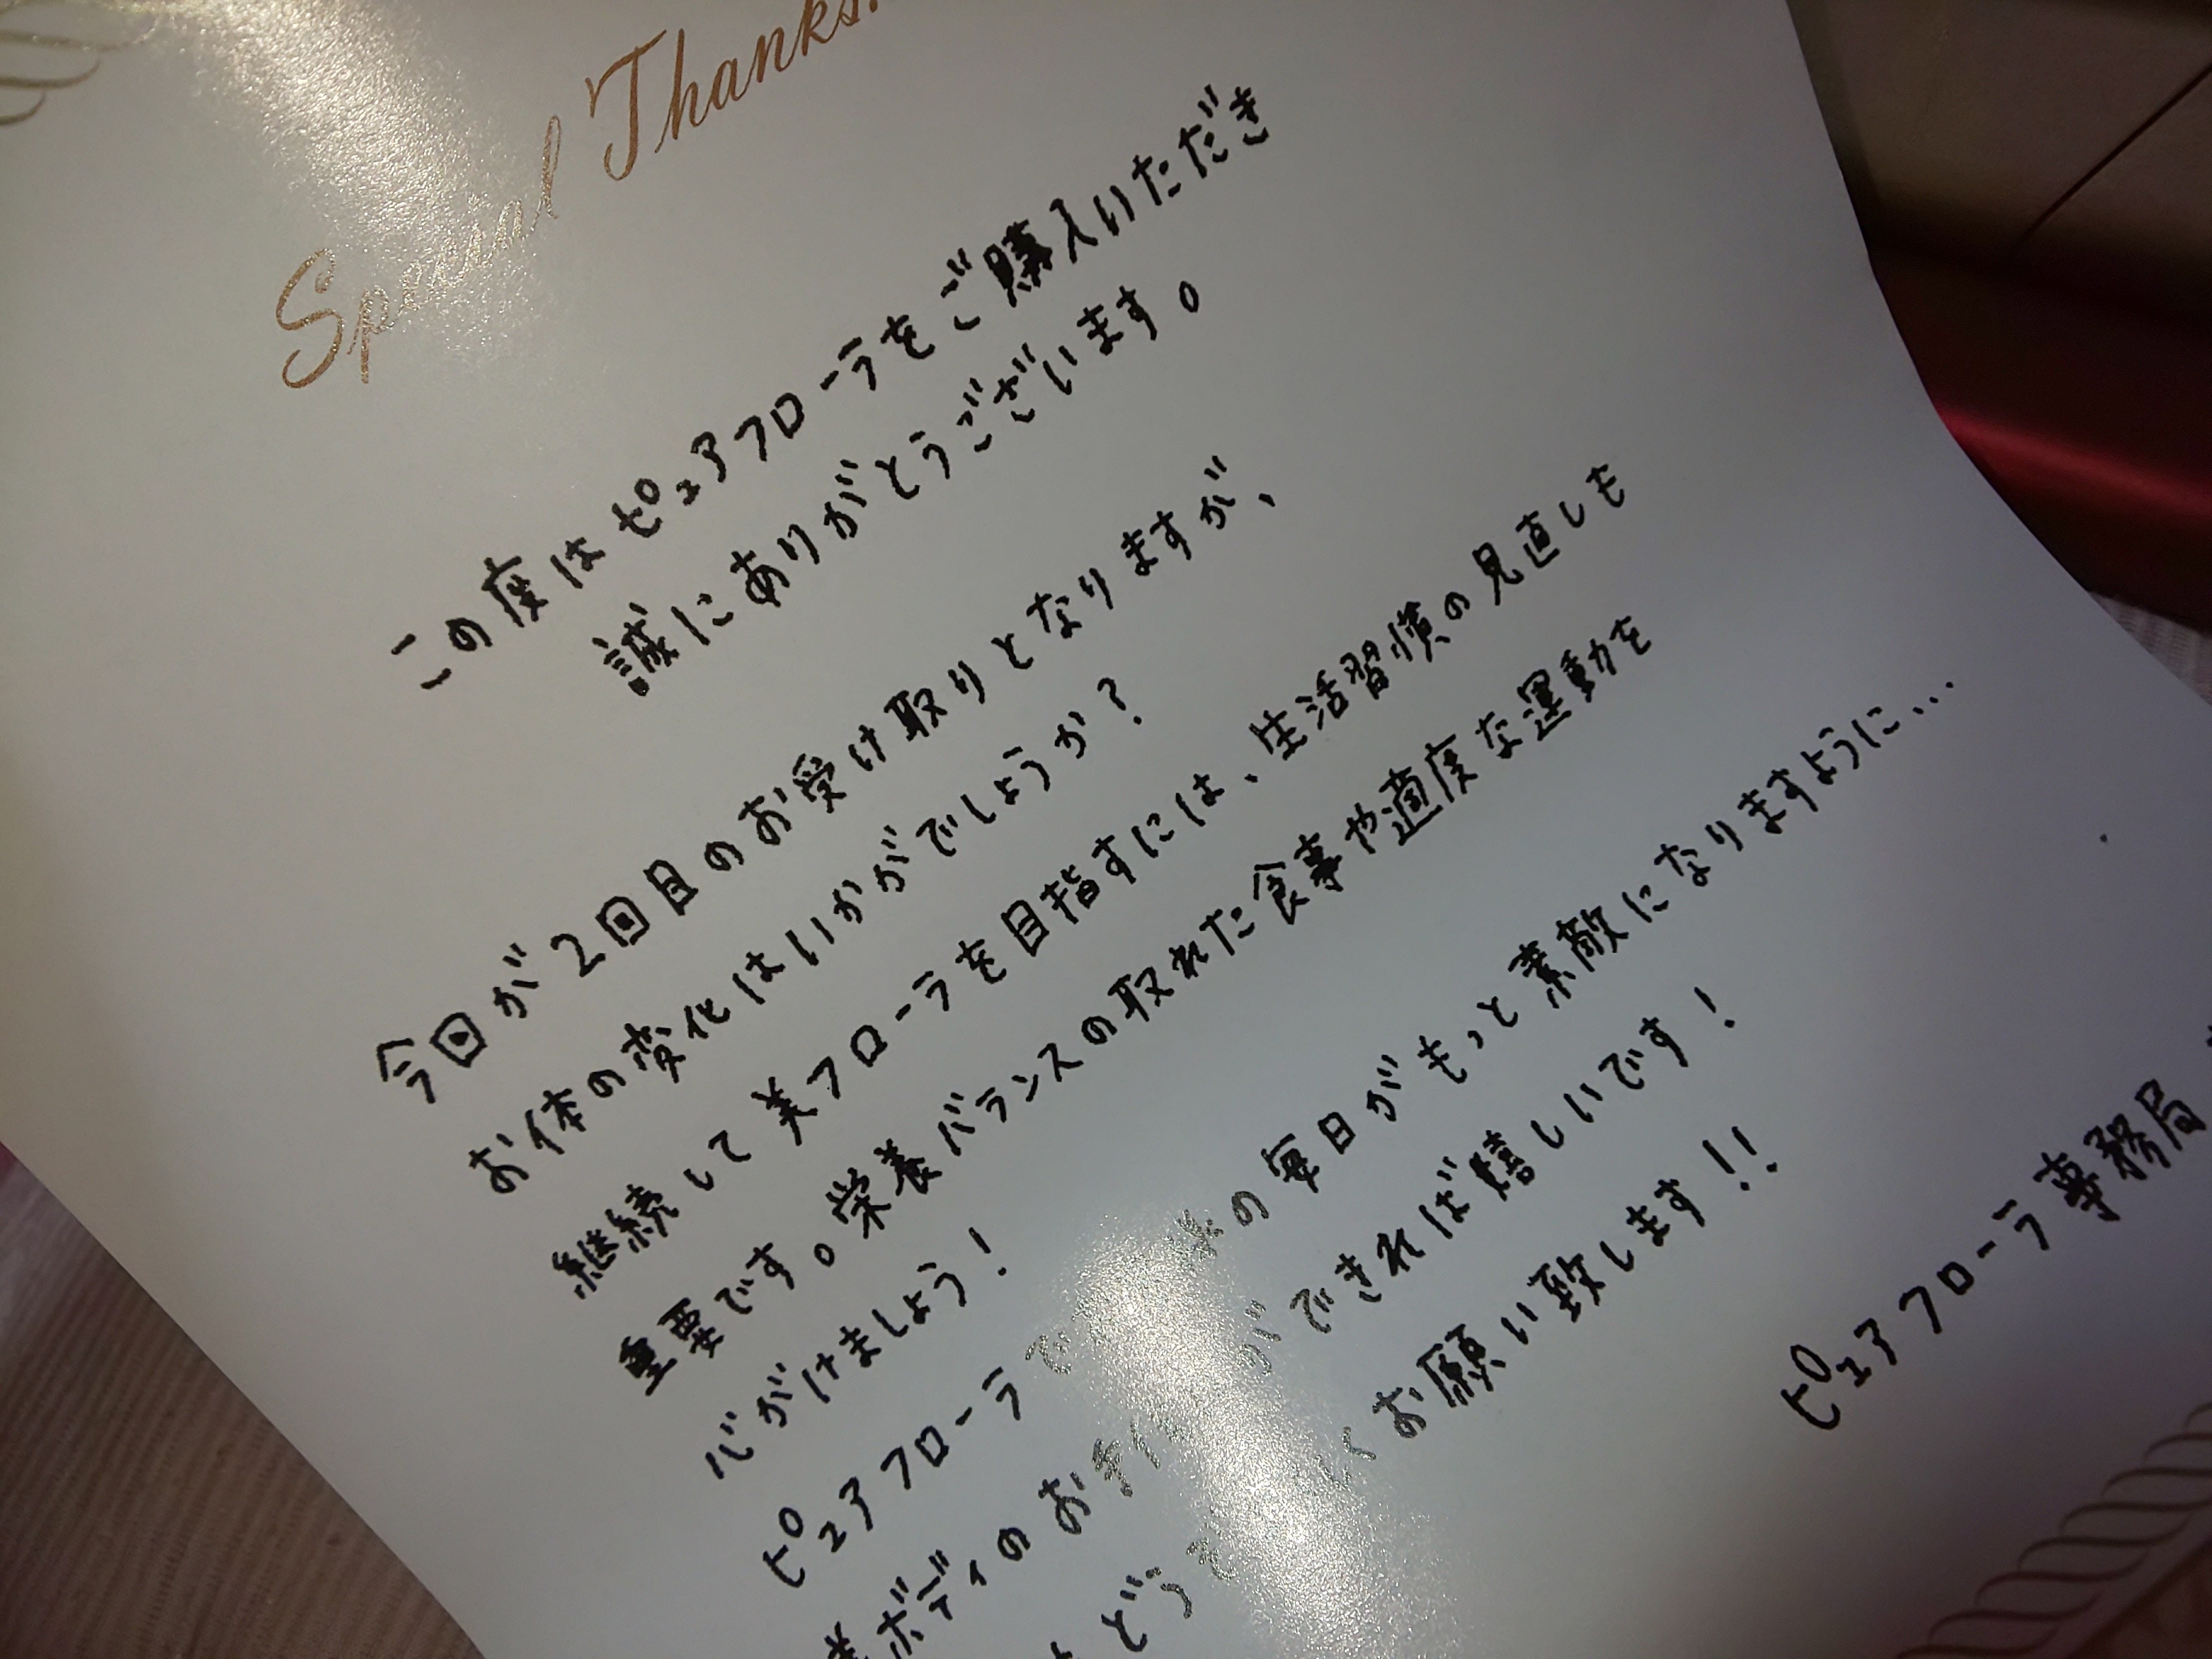 Special Thanks.
この度はピュアフローラをご購入いただき
誠にありがとうございます。
今回が2回目のお受け取りとなりますが、
お体の変化はいかがでしょうか?
継続して美フローラを目指すには、生活習慣の見直しも
重要です。栄養バランスの取れた食事や適度な運動を
心がけましょう!
ピュアフローラで 様の毎日がもっと素敵になりますように…
美ボディのお手伝いができれば嬉しいです!
どうぞ しくお願い致します!!
ピュアフローラ事務局